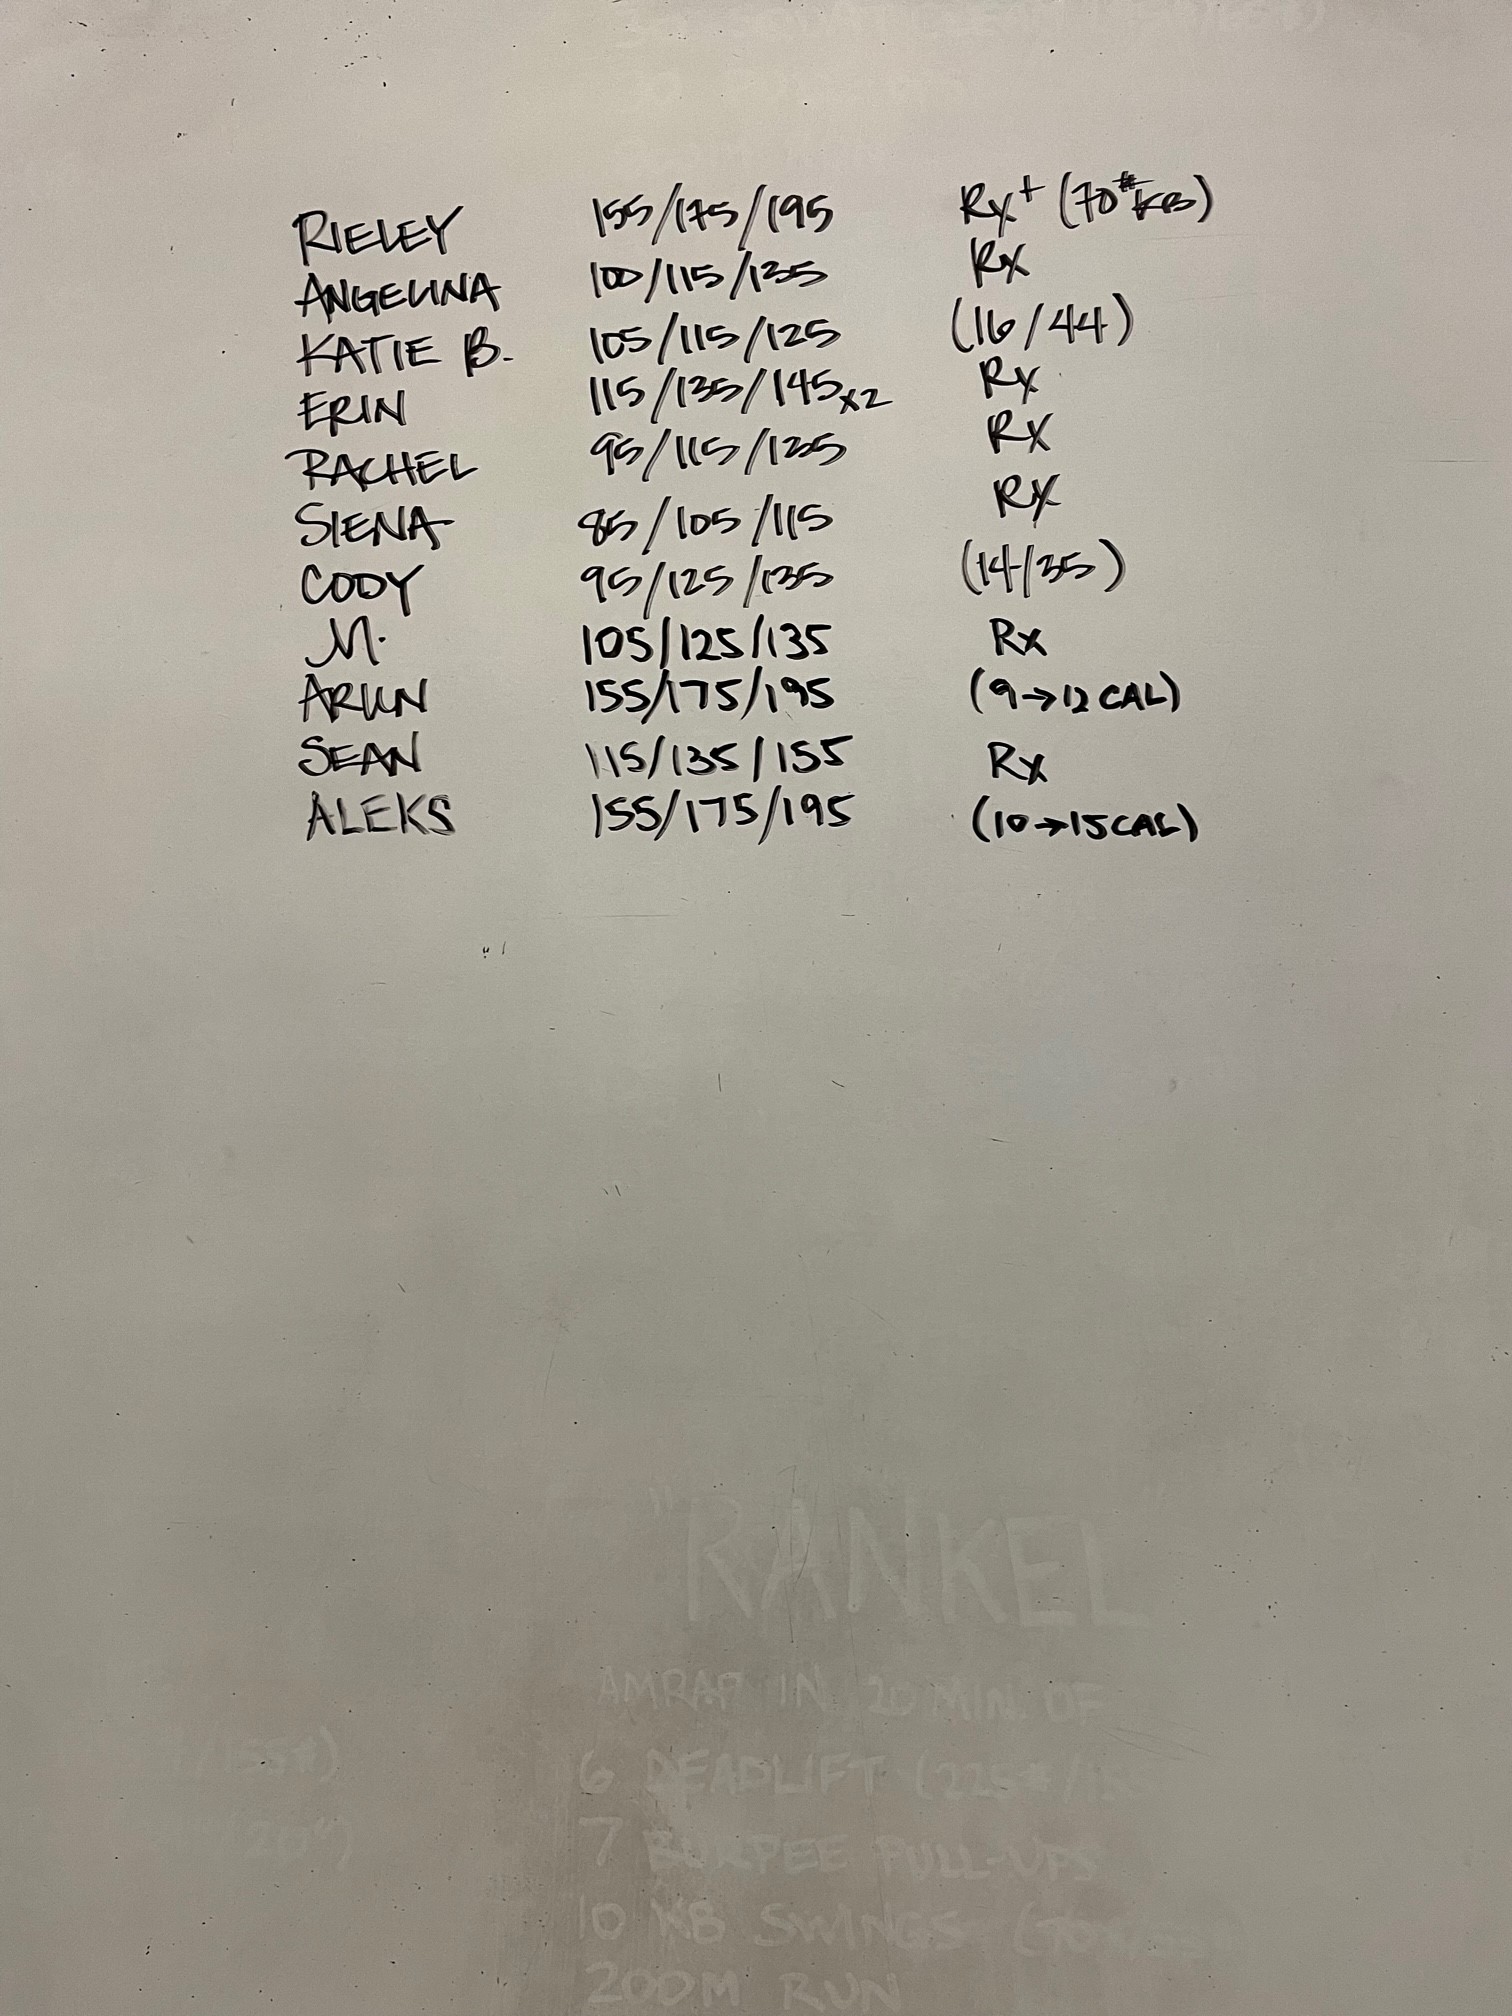 RIELEY 155/175/195 Rx+ (70# KB)
ANGELINA 100/115/135 Rx
KATIE B. 105/115/125 (16/44)
ERIN 115/135/145x2 Rx
RACHEL 95/115/135 Rx
SIENA 85/105/115 Rx
CODY 95/125/135 (14/35)
M. 105/125/135 Rx
ARUN 155/175/195 (9→12 CAL)
SEAN 115/135/155 Rx
ALEKS 155/175/195 (10→15 CAL)
"RANKEL"
AMRAP IN 20 MIN. OF
/155#) 6 DEADLIFT (225#/155
(20") 7 BURPEE PULL-UPS
10 KB SWINGS (70
200M RUN